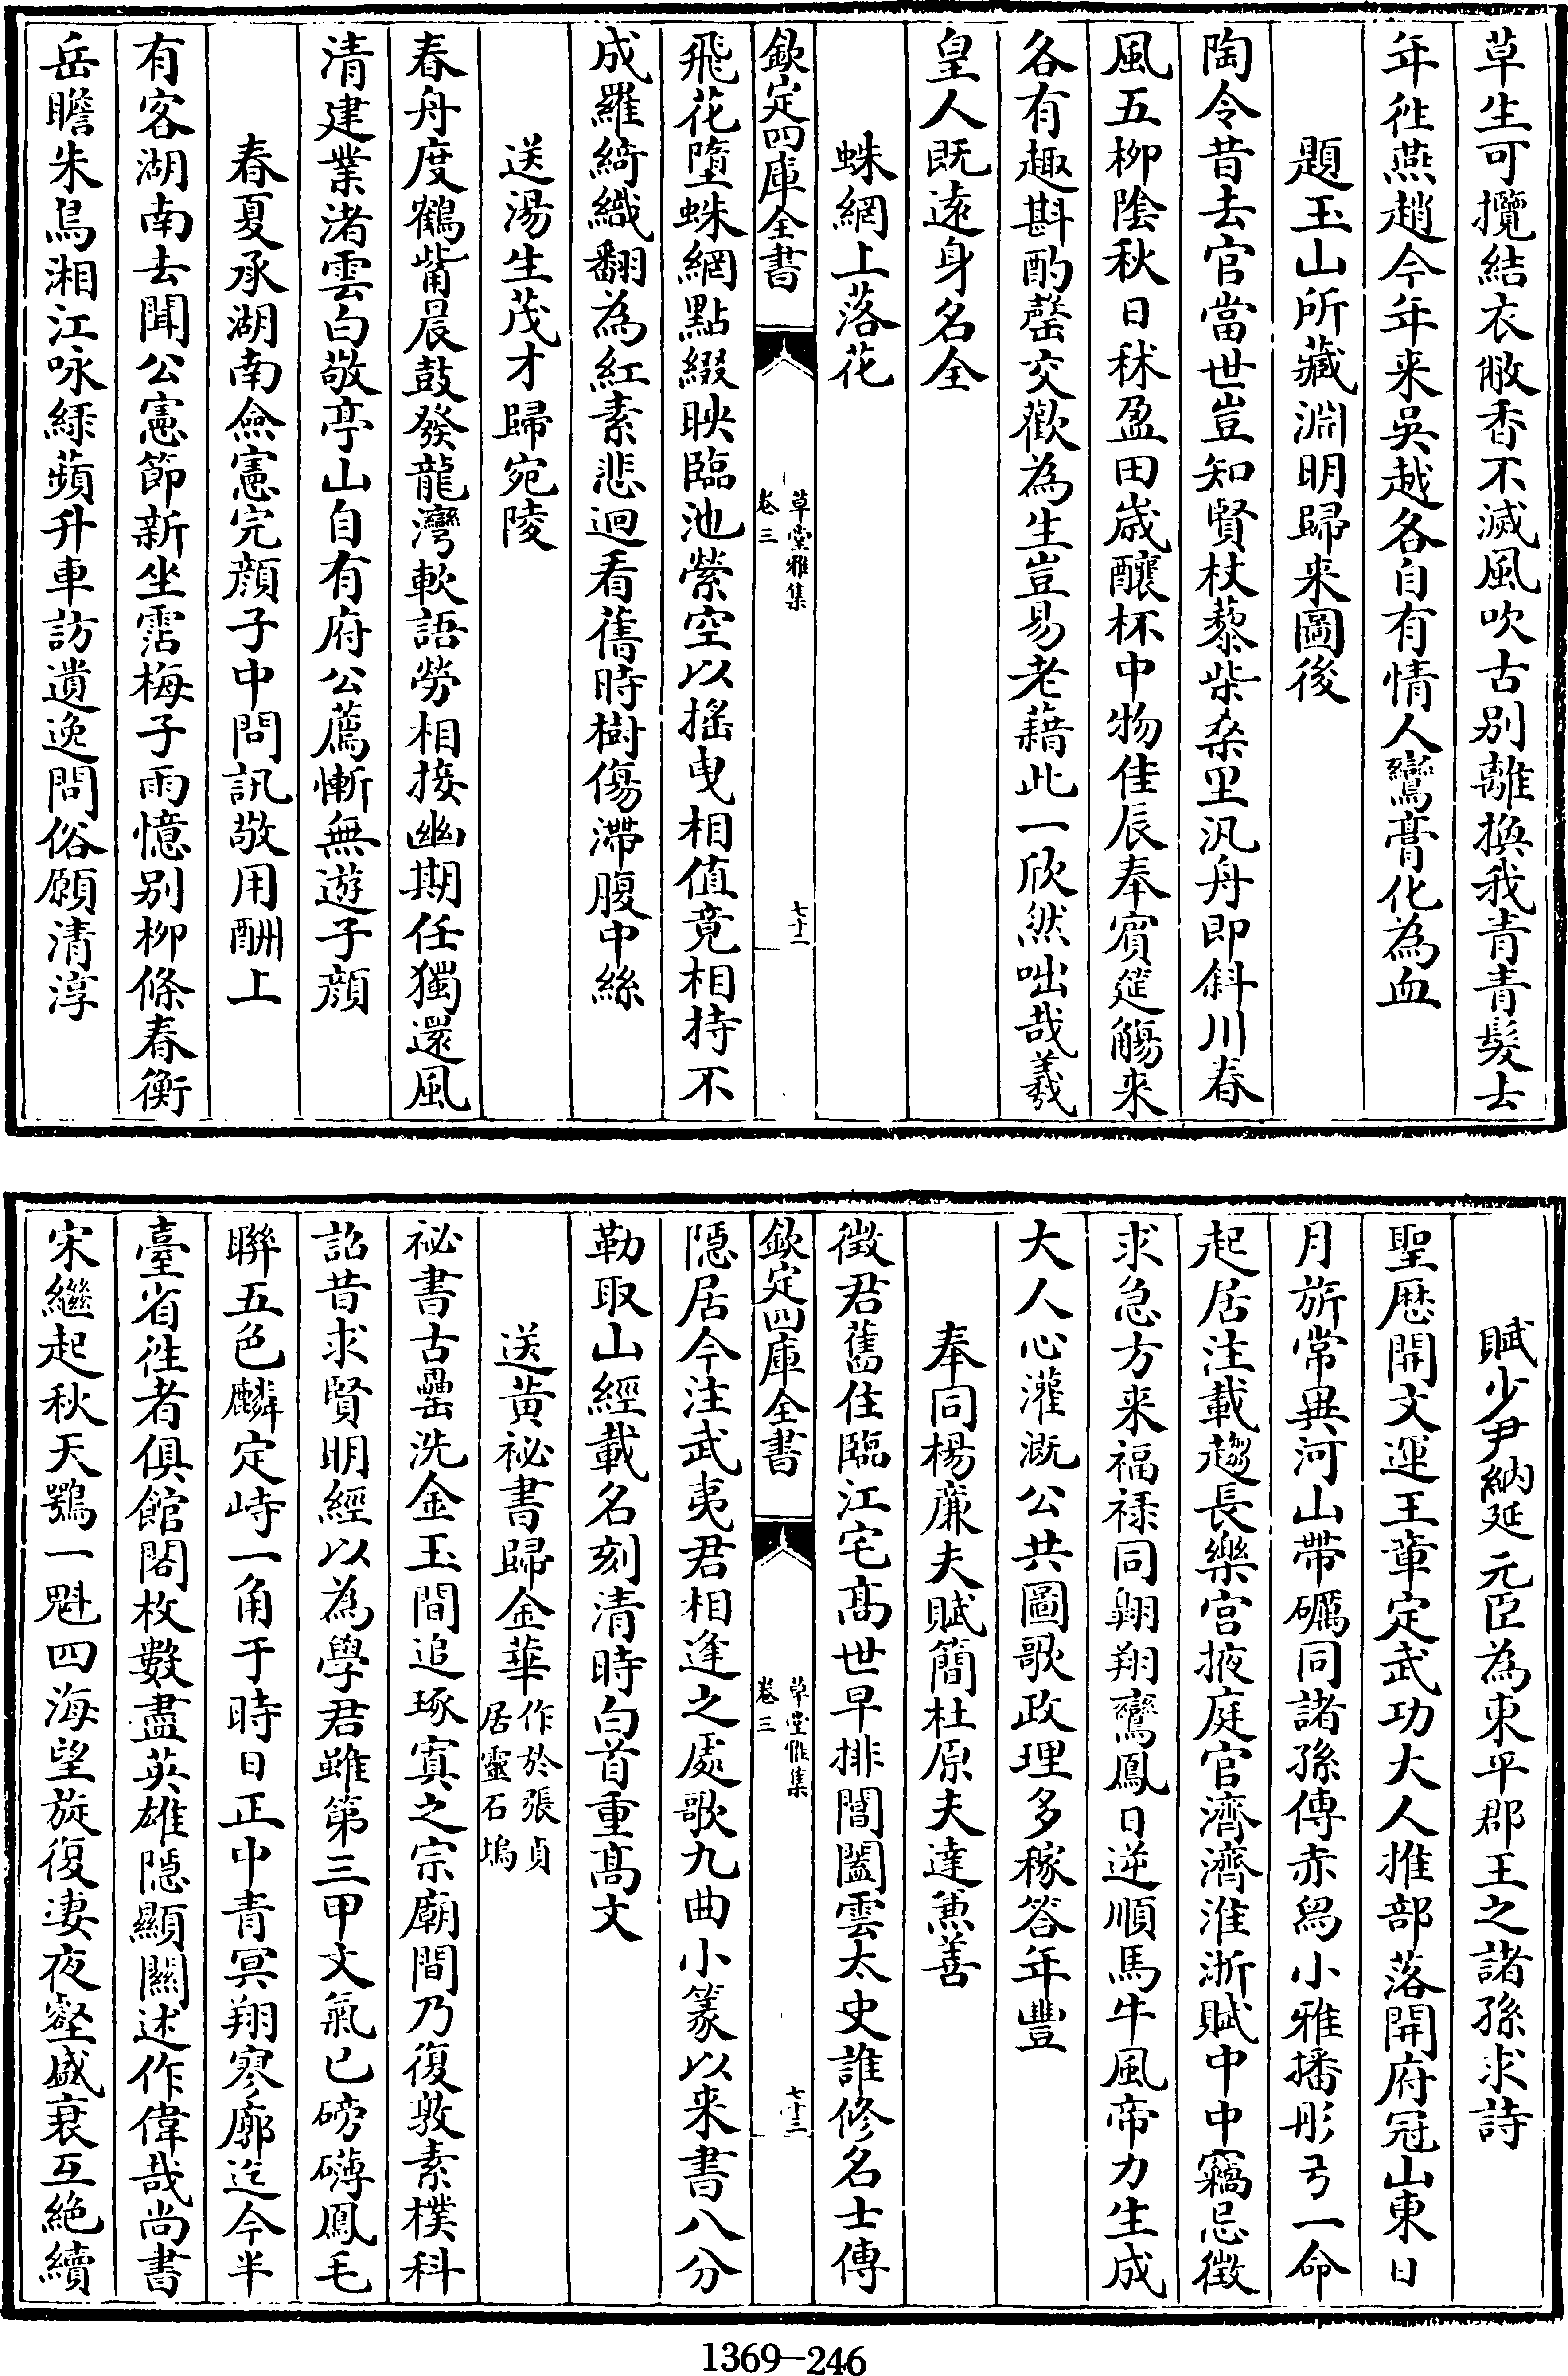 草生可攬結衣敝香不滅風吹古别離換我青青髮去
年徃燕趙今年来吳越各自有情人鸞膏化為血
題玉山所藏淵明歸来圖後
陶令昔去官當世豈知賢杖藜柴桑里汎舟即斜川春
風五柳陰秋日秫盈田歳釀杯中物佳辰奉賔筵觴来
各有趣斟酌罄交歡為生豈易老藉此一欣然咄哉羲
皇人既遠身名全
蛛網上落花
欽定四庫全書
草堂雅集
卷三
七十一
飛花墮蛛網點綴映臨池縈空以搖曳相值竟相持不
成羅綺織翻為紅素悲迴看舊時樹傷滯腹中絲
送湯生茂才歸宛陵
春舟度鶴觜晨鼓發龍灣軟語勞相接幽期任獨還風
清建業渚雲白敬亭山自有府公薦慚無遊子顔
春夏承湖南僉憲完顔子中問訊敬用酬上
有客湖南去聞公憲節新坐霑梅子雨憶别柳條春衡
岳瞻朱鳥湘江咏緑蘋升車訪遺逸問俗願清淳
賦少尹納延元臣為東平郡王之諸孫求詩
聖歴開文運王章定武功大人推部落開府冠山東日
月旂常㒷河山帶礪同諸孫傳赤舄小雅播彤弓一命
起居注載趨長樂宫掖庭官濟濟淮浙賦中中竊忌徵
求急方来福禄同翺翔鸞鳳日逆順馬牛風帝力生成
大人心灌溉公共圖歌政理多稼答年豐
奉同楊廉夫賦簡杜原夫達兼善
徴君舊住臨江宅髙世早排閶闔雲太史誰修名士傳
欽定四庫全書
草堂雅集
卷三
七十二
隠居今注武夷君相逢之處歌九曲小篆以来書八分
勒取山經載名刻清時白首重髙文
送黄祕書歸金華
作於張貞
居靈石塢
祕書古罍洗金玉間追琢寘之宗廟間乃復敦素樸科
詔昔求賢明經以為學君雖第三甲文氣已磅礴鳳毛
聯五色麟定峙一角于時日正中青冥翔寥廓迄今半
臺省徃者俱館閣枚數盡英雄隠顯闗述作偉哉尚書
宋繼起秋天鶚一魁四海望旋復凄夜壑盛衰互絶續
1369—246